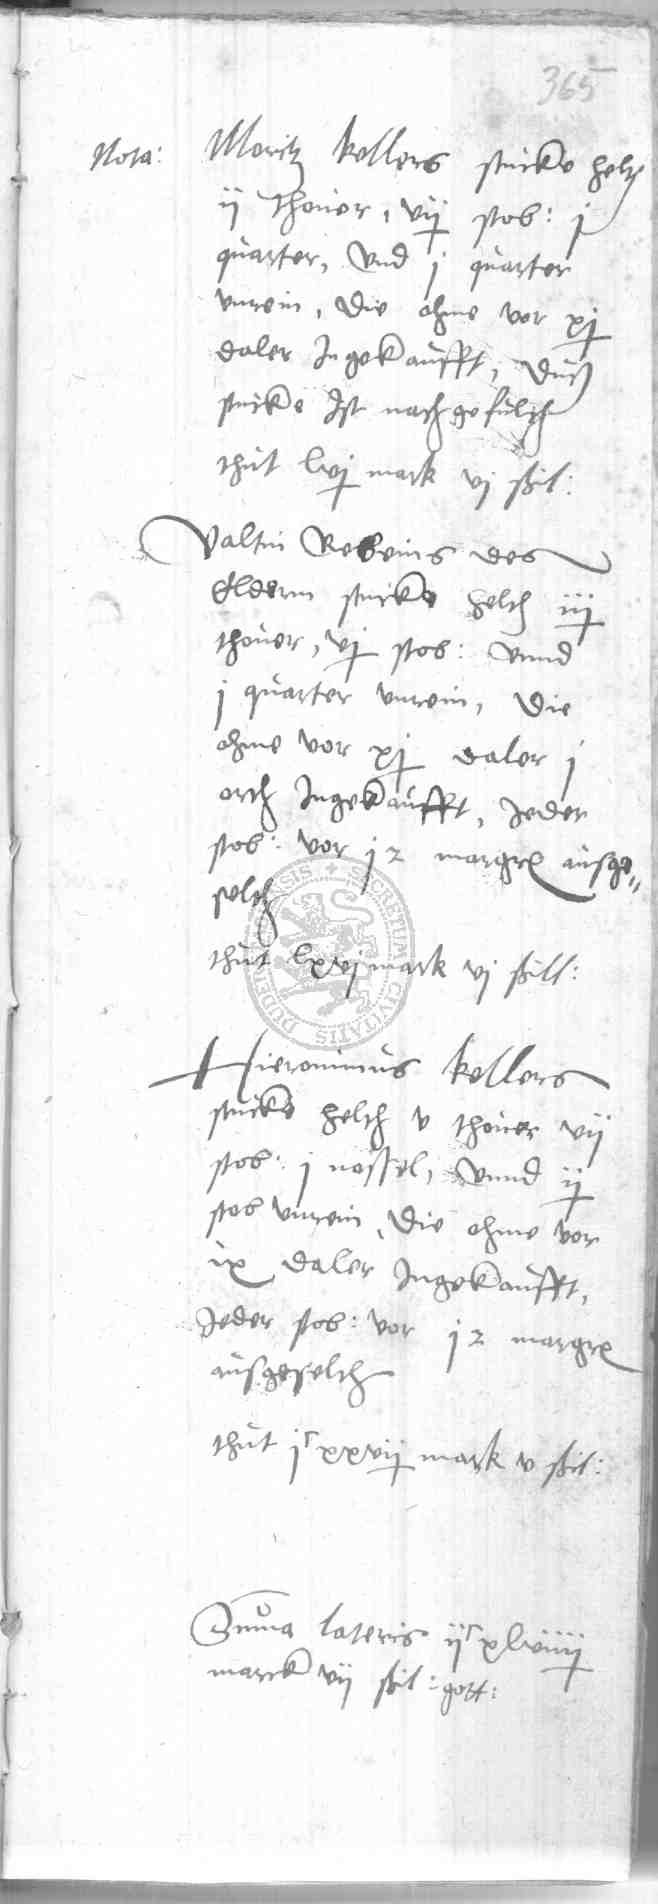 365
Nota: Moritz kellers stucke helth
ij thover, vij stob: j
quarter, Vnd j quarter
vnrein, die ohme vor xj
daler Ingekaufft, Ditz
stucke Ist nachgefulth
thut lvj mark vj ßil:
Valtin Robeins des
Eldern stucke helth iij
thover, vj stob: Vnnd
j quarter vnrein, Die
ohme vor xj daler j
orth Ingekaufft, Jeder
stob: vor j2 margr ausge„
selth
thut lxvj mark vj ßill:
Hieronimus kellers
stucke helth v thover vij
stob: j nossel, Vnnd ij
stob vnrein, Die ohme vor
ix daler Ingekaufft,
Jeder stob: vor j2 margr
ausgeselth
thut jc xxvij mark v ßil:
Summa lateris ijc xlviiij
marck vij ßil: gott:
SECRETUM CIVITATIS DUDER SIS